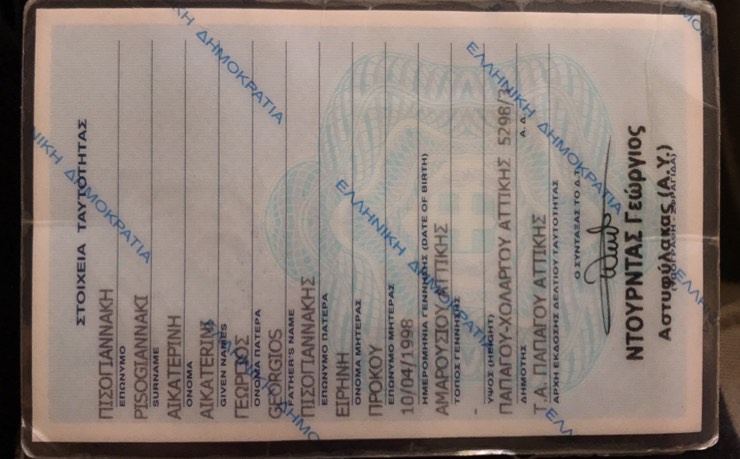 ΣΤΟΙΧΕΙΑ ΤΑΥΤΟΤΗΤΑΣ
ΠΙΣΟΓΙΑΝΝΑΚΗ
ΕΠΩΝΥΜΟ
PISOGIANNAKI
SURNAME
ΑΙΚΑΤΕΡΙΝΗ
ΟΝΟΜΑ
AIKATERINI
GIVEN NAMES
ΓΕΩΡΓΙΟΣ
ΟΝΟΜΑ ΠΑΤΕΡΑ
GEORGIOS
FATHER'S NAME
ΠΙΣΟΓΙΑΝΝΑΚΗΣ
ΕΠΩΝΥΜΟ ΠΑΤΕΡΑ
ΕΙΡΗΝΗ
ΟΝΟΜΑ ΜΗΤΕΡΑΣ
ΠΡΟΚΟΥ
ΕΠΩΝΥΜΟ ΜΗΤΕΡΑΣ
10/04/1998
ΗΜΕΡΟΜΗΝΙΑ ΓΕΝΝΗΣΗΣ (DATE OF BIRTH)
ΑΜΑΡΟΥΣΙΟΥ ΑΤΤΙΚΗΣ
ΤΟΠΟΣ ΓΕΝΝΗΣΗΣ
-
ΥΨΟΣ (HEIGHT)
ΠΑΠΑΓΟΥ-ΧΟΛΑΡΓΟΥ ΑΤΤΙΚΗΣ
ΔΗΜΟΤΗΣ Α.Δ.
Τ.Α. ΠΑΠΑΓΟΥ ΑΤΤΙΚΗΣ
ΑΡΧΗ ΕΚΔΟΣΗΣ ΔΕΛΤΙΟΥ ΤΑΥΤΟΤΗΤΑΣ
Ο ΣΥΝΤΑΞΑΣ ΤΟ Δ.Τ.
ΝΤΟΥΡΝΤΑΣ Γεώργιος
Αστυφύλακας (Α.Υ.)
ΕΛΛΗΝΙΚΗ ΔΗΜΟΚΡΑΤΙΑ
ΕΛΛΗΝΙΚΗ ΔΗΜΟΚΡΑΤΙΑ